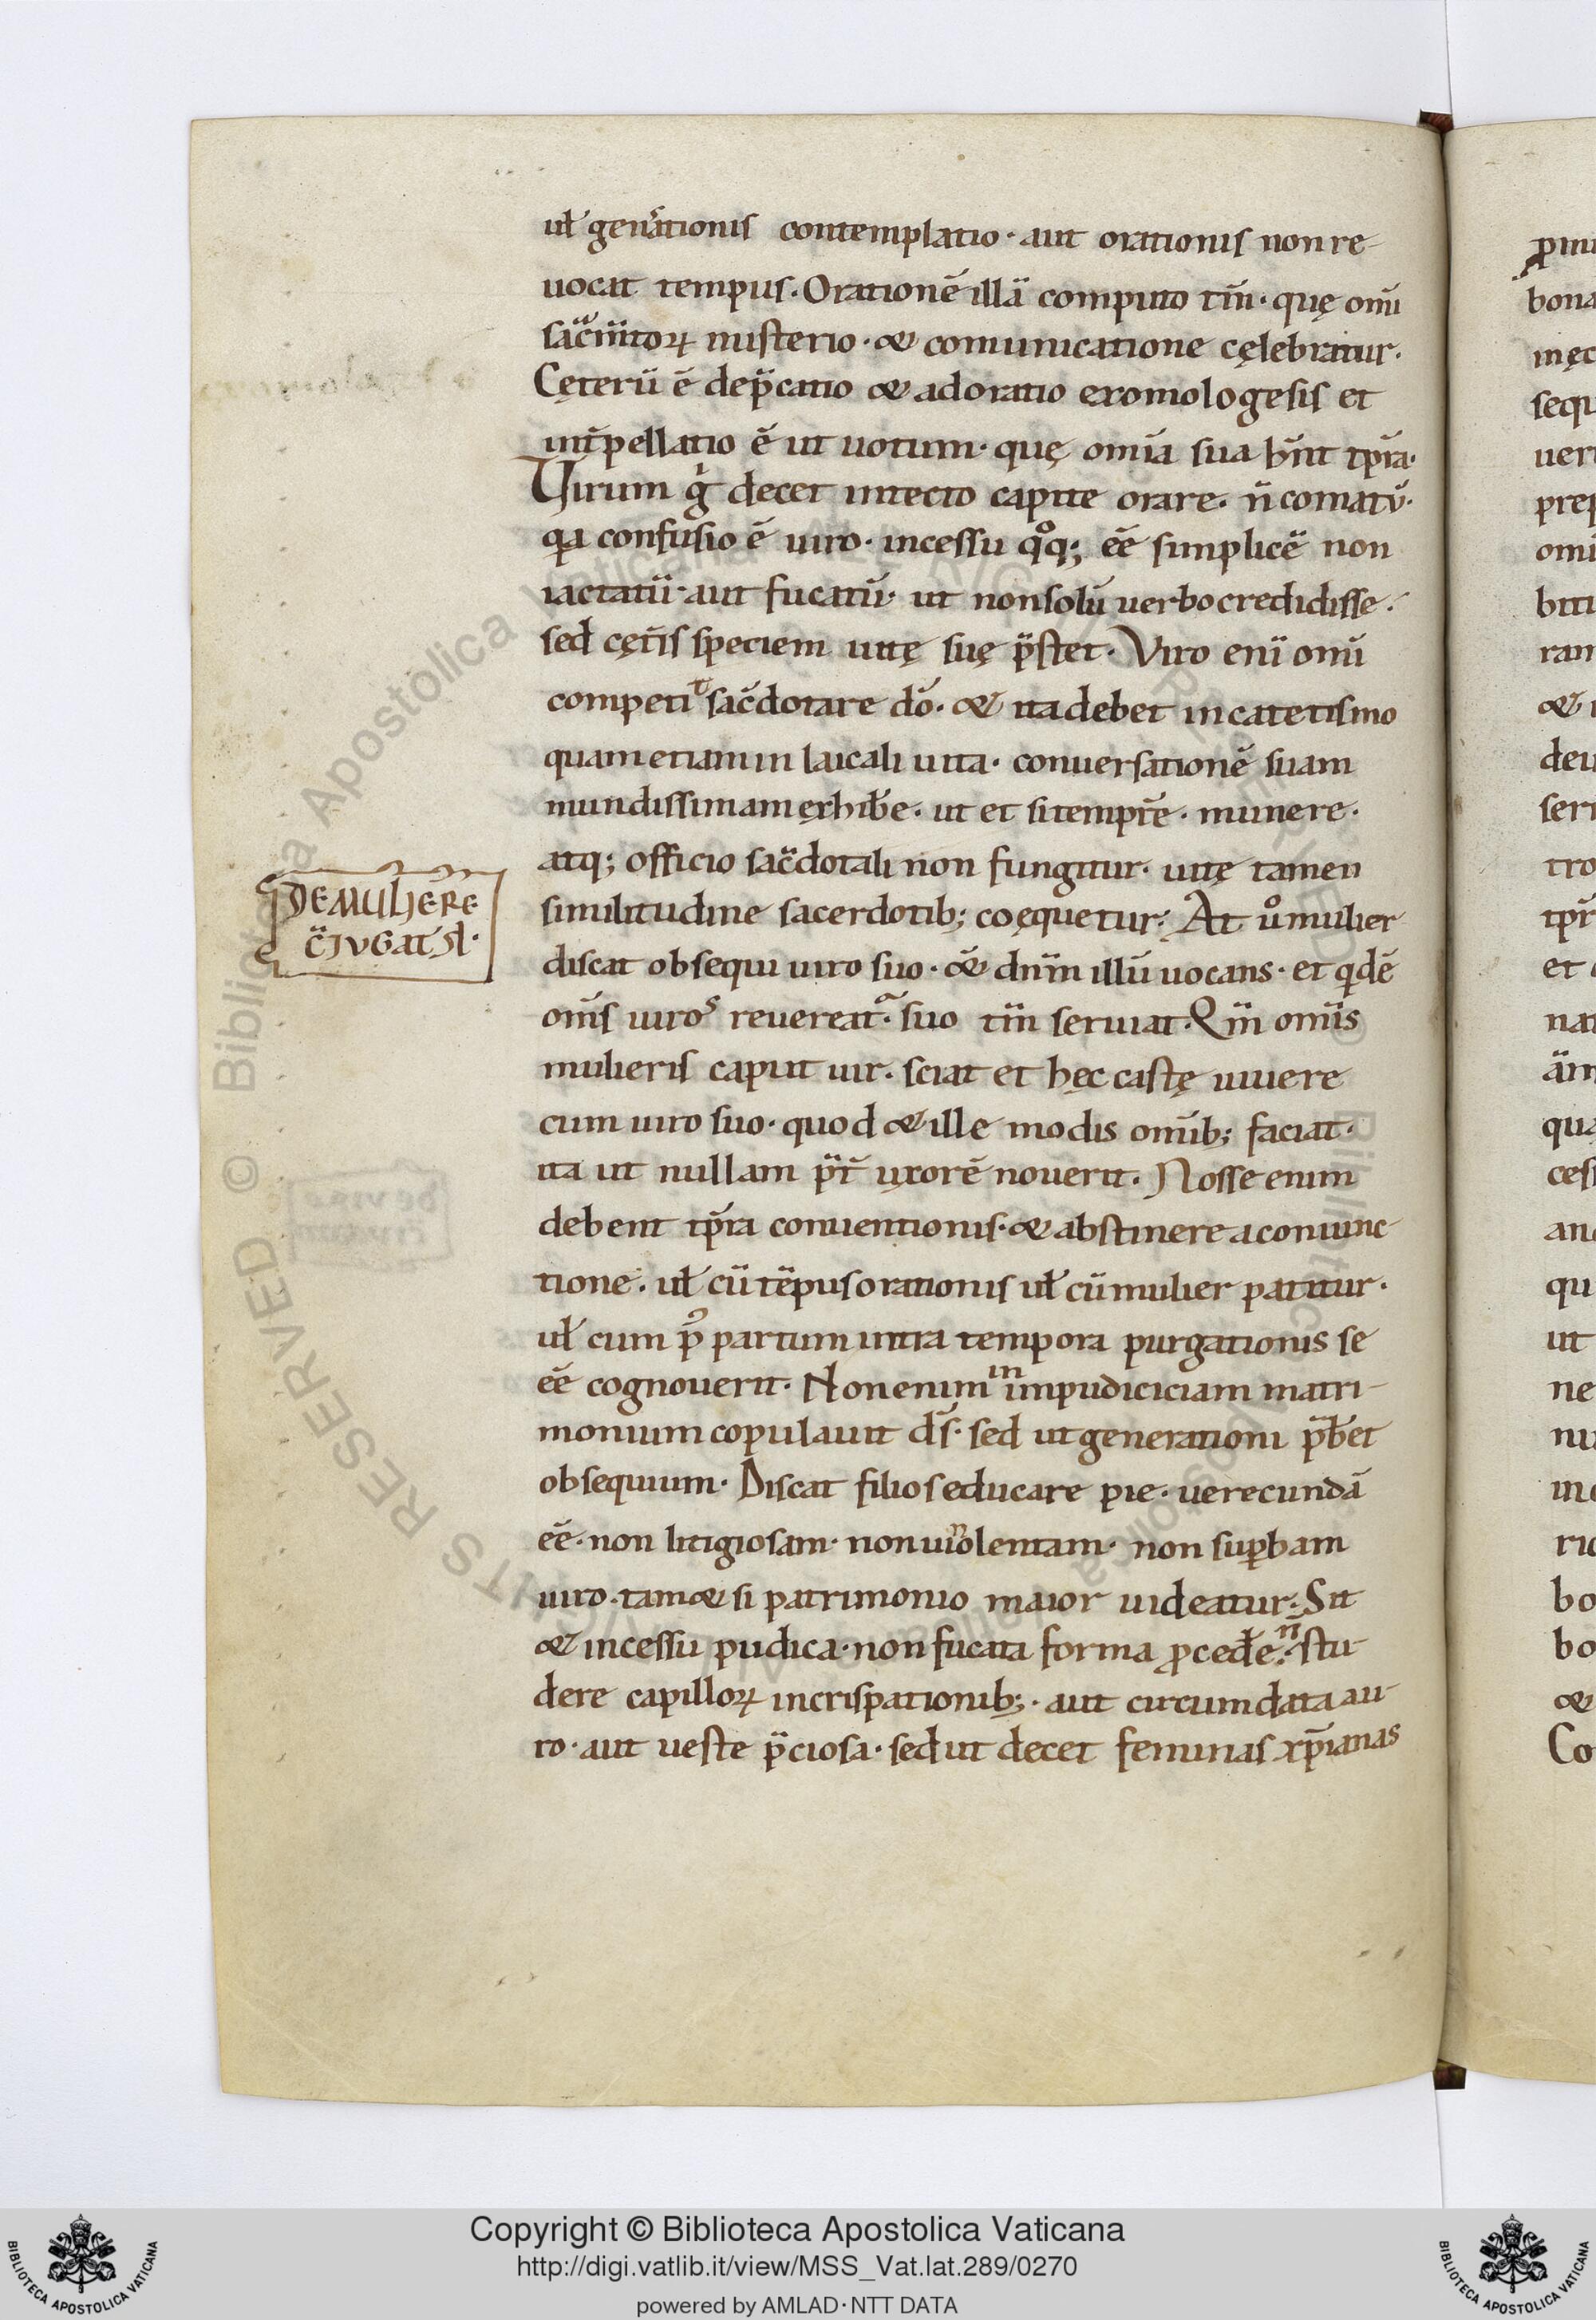 ul̄ gen̄ationis contemplatio · aut orationis non re-
uocat tempus. Orationē illā computo tm̄ · quę omī
sacͣm̄torꝝ misterio · & comunicatione cęlebratur.
Cęterū ē dep̄catio & adoratio exomologesis et
int̄pellatio ē ut uotum · quę omīa sua hn̄t tp̄ra·
Virum gͥ decet intecto capite orare. n̄ comatū·
qꝛ confusio ē uiro · incessu qͦq; eē̄ simplicē non
iactatū · aut fucatū · ut non solū uerbo credidisse.
sed cęt̄is speciem uitę suę p̄stet. Viro enī omī
competiᵗ sac̄dotare dō. & ita debet in catetismo
quam etiam in laicali uita · conuersationē suam
mundissimam exhibē̄e. ut et si tempr̄e · munere.
atq; officio sac̄dotali non fungitur · uitę tamen
similitudine sacerdotib; coęquetur. At uͦ mulier
discat obsequi uiro suo · & dn̄m illū uocans · et qͥdē
om̄s uiroˢ reuereat᷑. suo tm̄ seruiat. Qm̄ omīs
mulieris caput uir. sciat et hęc castę uiuere
cum uiro suo · quod & ille modis omīb; faciat.
ita ut nullam p̄t̄ uxorē nouerit. Nosse enim
debent tp̄ra conuentionis · & abstinere a coniunc-
tione. ul̄ cū tēpus orationis ul̄ cū mulier patitur.
ul̄ cum p᷒ partum intra tempora purgationis se
eē̄ cognouerit. Non enim ⁱⁿ impudiciciam matri-
monium copulauit ds̄. sed ut generationi p̄bet
obsequium. Discat filios educare pie. uerecundā
eē̄. non litigiosam · non uiⁿolentam · non suꝑbam
uiro. tam&si patrimonio maior uideatur. Sit
& incessu pudica · non fucata forma ꝓcedē. ⁿ stu-
dere capillorꝝ incrispationib;. aut circumdata au-
ro · aut ueste p̄ciosa · sed ut decet feminas xp̄ianas
DE MULIERE
C̄JVGAT
Copyright © Biblioteca Apostolica Vaticana
http://digi.vatlib.it/view/MSS_Vat.lat.289/0270
powered by AMLAD · NTT DATA
BIBLIOTECA APOSTOLICA VATICANA
BIBLIOTECA APOSTOLICA VATICANA